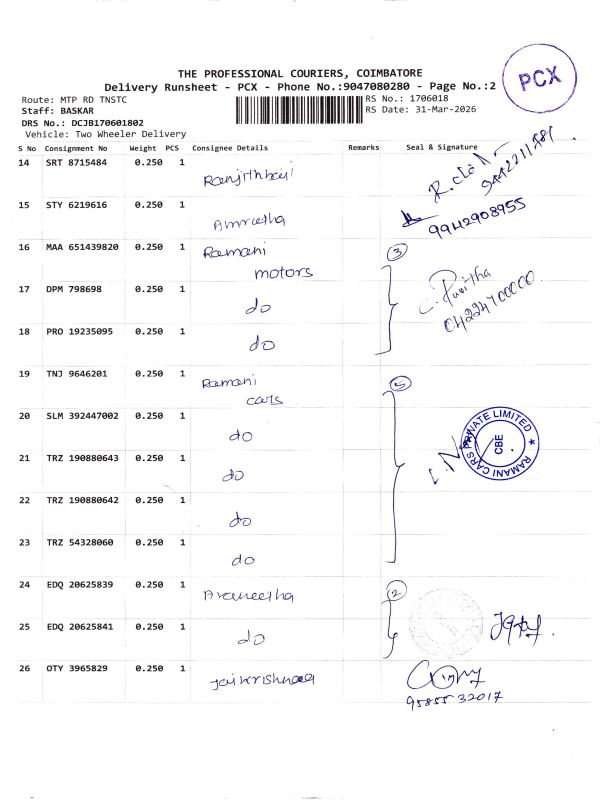 THE PROFESSIONAL COURIERS, COIMBATORE
PCX
Delivery Runsheet - PCX - Phone No.:9047080280 - Page No.:2
Route: MTP RD TNSTC RS No.: 1706018
Staff: BASKAR RS Date: 31-Mar-2026
DRS No.: DCJB170601802
Vehicle: Two Wheeler Delivery
S No Consignment No Weight PCS Consignee Details Remarks Seal & Signature
14 SRT 8715484 0.250 1
15 STY 6219616 0.250 1 Amrutha 9942908955
16 MAA 651439820 0.250 1 Ramani motors 3
17 DPM 798698 0.250 1 do 04224700000
18 PRO 19235095 0.250 1 do
19 TNJ 9646201 0.250 1 Ramani cars 5
20 SLM 392447002 0.250 1 do
RAMANI CARS PRIVATE LIMITED
CBE
21 TRZ 190880643 0.250 1 do
22 TRZ 190880642 0.250 1 do
23 TRZ 54328060 0.250 1 do
24 EDQ 20625839 0.250 1 2
25 EDQ 20625841 0.250 1 do
26 OTY 3965829 0.250 1
9585532017